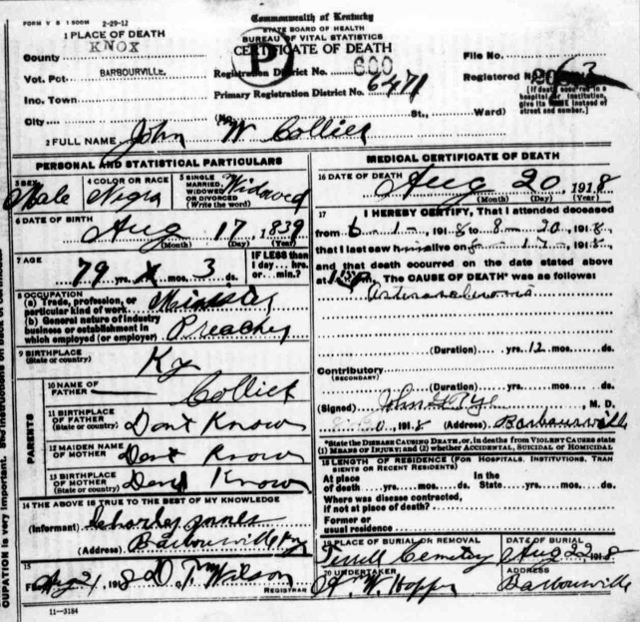 FORM V S 1 500M 2-29-12
Commonwealth of Kentucky
STATE BOARD OF HEALTH
BUREAU OF VITAL STATISTICS
CERTIFICATE OF DEATH
1 PLACE OF DEATH
County KNOX
Vot. Pct. BARBOURVILLE.
Inc. Town
City
P
Registration District No. 600
Primary Registration District No. 6471
(No. St., Ward)
File No.
Registered No. 63
[If death occurred in a hospital or institution, give its NAME instead of street and number.]
2 FULL NAME John W Collier
PERSONAL AND STATISTICAL PARTICULARS
3 SEX Male
4 COLOR OR RACE Negro
5 SINGLE MARRIED, WIDOWED OR DIVORCED (Write the word) Widowed
6 DATE OF BIRTH Aug 17, 1839
(Month) (Day) (Year)
7 AGE 79 yrs. X mos. 3 ds.
IF LESS than 1 day... hrs. or... min.?
8 OCCUPATION
(a) Trade, profession, or particular kind of work Minister
(b) General nature of industry business or establishment in which employed (or employer) Preacher
9 BIRTHPLACE (State or country) Ky
PARENTS
10 NAME OF FATHER Collier
11 BIRTHPLACE OF FATHER (State or country) Dont Know
12 MAIDEN NAME OF MOTHER Dont Know
13 BIRTHPLACE OF MOTHER (State or country) Dont Know
14 THE ABOVE IS TRUE TO THE BEST OF MY KNOWLEDGE
(Informant) Charley
(Address) Barbourville Ky
15
Filed Aug 21, 1918 D. T. Wilson
REGISTRAR
11-3184
MEDICAL CERTIFICATE OF DEATH
16 DATE OF DEATH Aug 20, 1918
(Month) (Day) (Year)
17 I HEREBY CERTIFY, That I attended deceased
from 6-1-, 1918 8-20, 1918,
that I last saw him alive on 8-17-, 1918,
and that death occurred on the date stated above
at m. The CAUSE OF DEATH* was as follows:
(Duration) yrs. 12 mos. ds.
Contributory
(SECONDARY)
(Duration) yrs. mos. ds.
(Signed) John, M. D.
1918 (Address) Barbourville
*State the DISEASE CAUSING DEATH, or, in deaths from VIOLENT CAUSES state (1) MEANS OF INJURY; and (2) whether ACCIDENTAL, SUICIDAL or HOMICIDAL
18 LENGTH OF RESIDENCE (FOR HOSPITALS, INSTITUTIONS, TRANSIENTS OR RECENT RESIDENTS)
At place of death yrs. mos. ds. In the State yrs. mos. ds.
Where was disease contracted, if not at place of death?
Former or usual residence
19 PLACE OF BURIAL OR REMOVAL Terrell Cemetery
DATE OF BURIAL Aug 22, 1918
20 UNDERTAKER W. Hopper
ADDRESS Barbourville
CUPATION is very important.